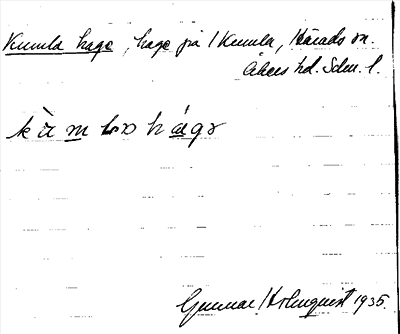 Kumla hage, hage på 1 Kumla, Härads sn.
Åkers hd. Sdm. l.
Gunnar Holmquist 1935.